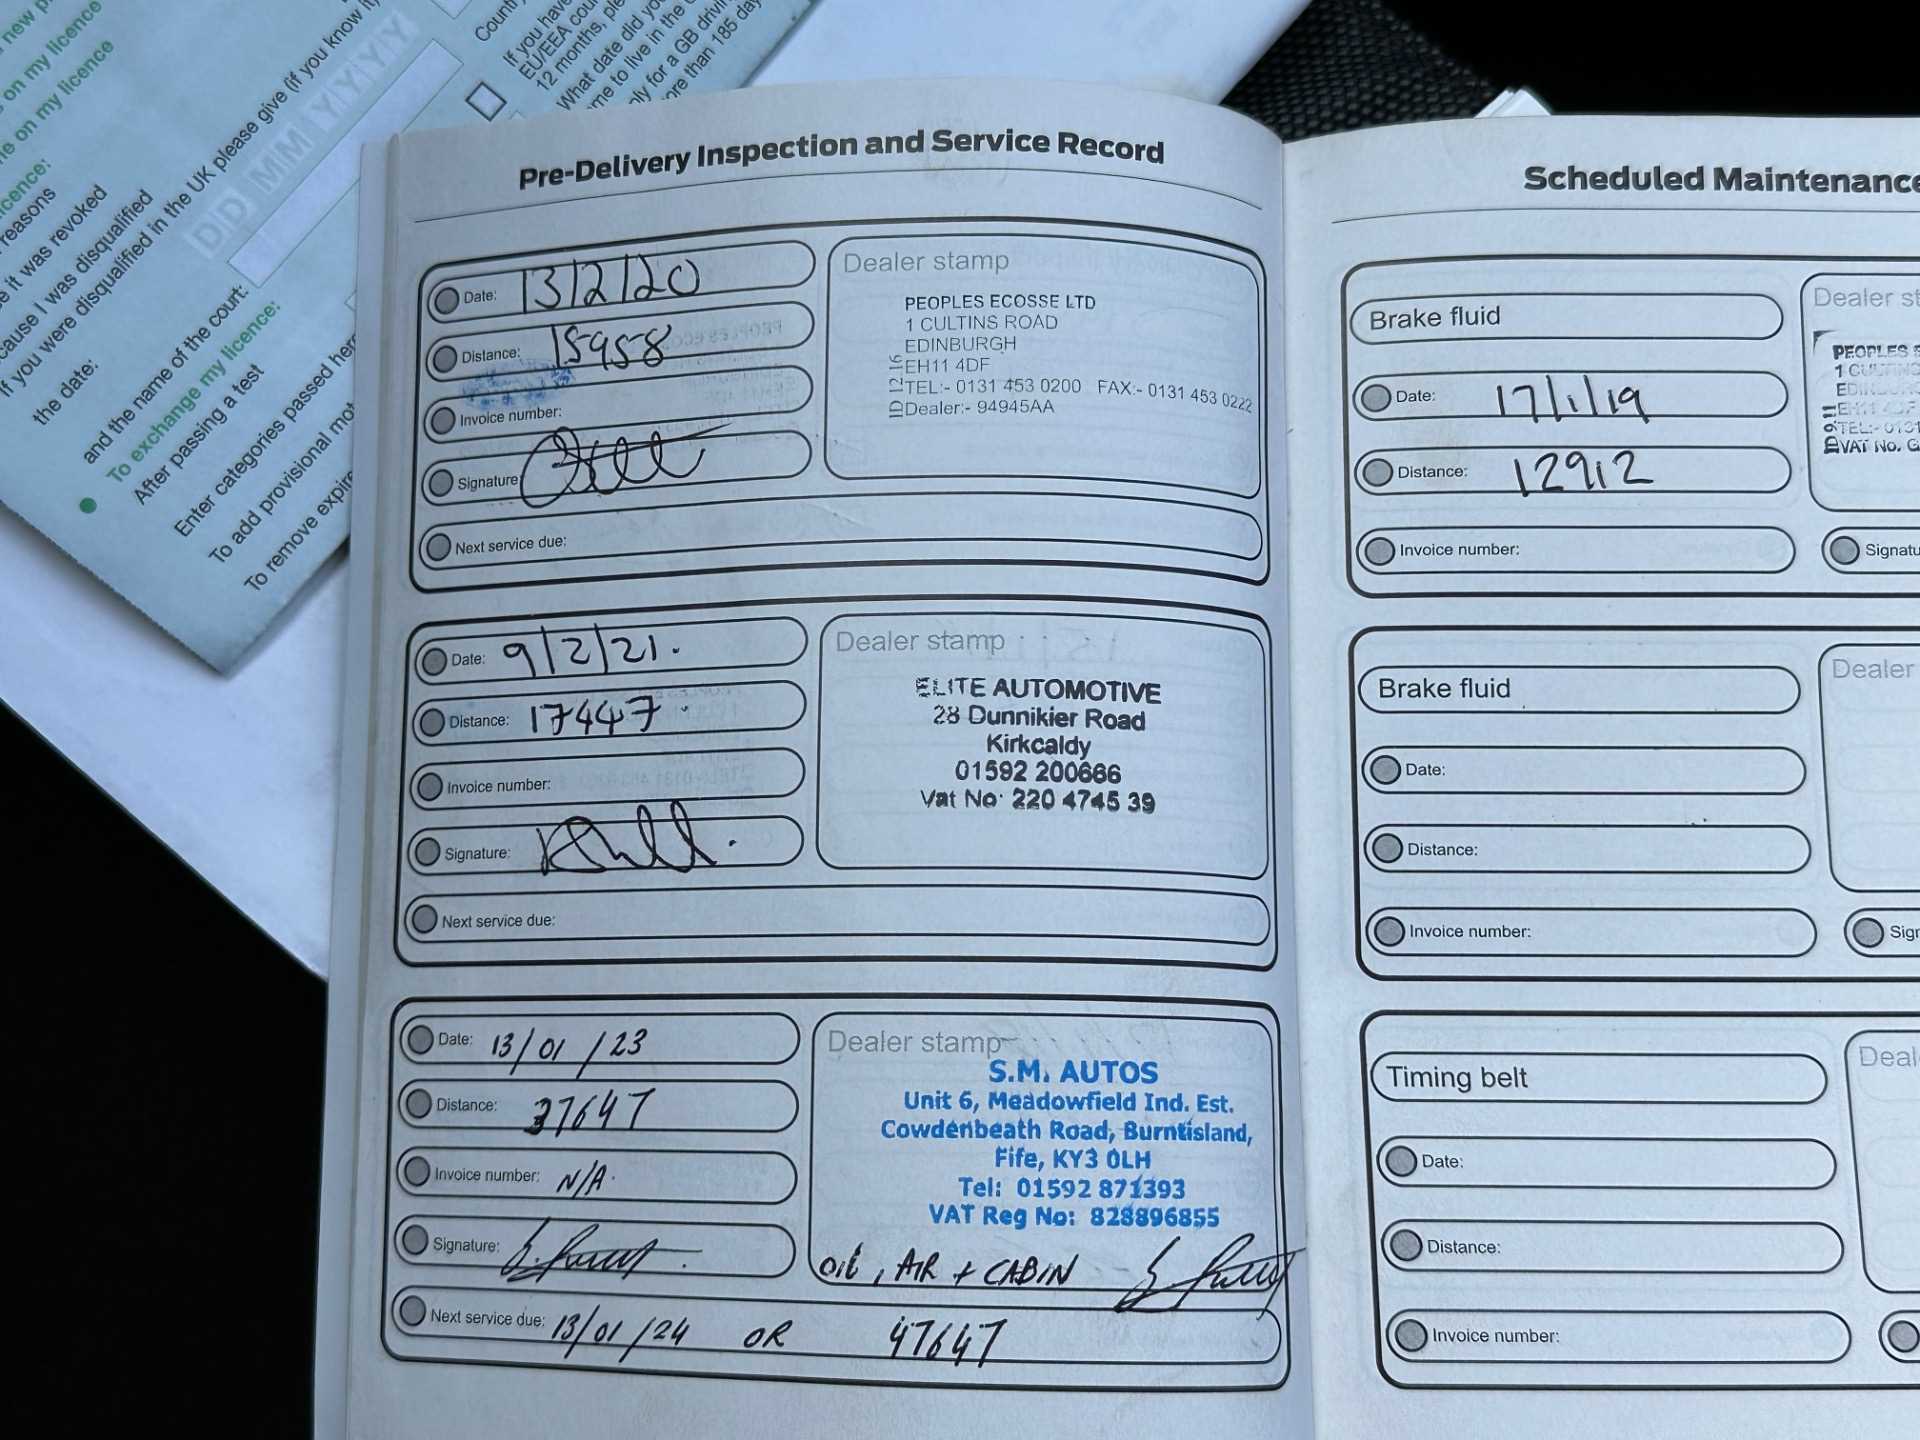 new p
s on my licence
ne on my licence
licence:
reasons
e it was revoked
cause I was disqualified
If you were disqualified in the UK please give (if you know it)
the date:
DD MM YYYY
and the name of the court:
To exchange my licence:
After passing a test
Enter categories passed here
To add provisional mot
To remove expire
Country
If you have
EU/EEA cou
12 months, ple
What date did yo
me to live in the
ply for a GB drivin
ore than 185 day
Pre-Delivery Inspection and Service Record
Date: 13/2/20
Distance: 15958
Invoice number:
Signature:
Next service due:
Dealer stamp
PEOPLES ECOSSE LTD
1 CULTINS ROAD
EDINBURGH
EH11 4DF
TEL:- 0131 453 0200 FAX:- 0131 453 0222
Dealer:- 94945AA
ID 12 16
Date: 9/2/21.
Distance: 17447.
Invoice number:
Signature:
Next service due:
Dealer stamp
ELITE AUTOMOTIVE
28 Dunnikier Road
Kirkcaldy
01592 200666
Vat No: 220 4745 39
Date: 13/01/23
Distance: 37647
Invoice number: N/A.
Signature:
Next service due: 13/01/24 OR 47647
Dealer stamp
S.M. AUTOS
Unit 6, Meadowfield Ind. Est.
Cowdenbeath Road, Burntisland,
Fife, KY3 0LH
Tel: 01592 871393
VAT Reg No: 828896855
OIL, AIR + CABIN
Scheduled Maintenance
Brake fluid
Date: 17/1/19
Distance: 12912
Invoice number:
Dealer st
PEOPLES E
1 CULTINS
EDINBURG
EH11 4DF
TEL:- 0131
VAT No. G
Signatu
Brake fluid
Date:
Distance:
Invoice number:
Dealer
Sign
Timing belt
Date:
Distance:
Invoice number:
Deal